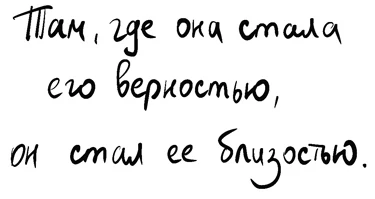 Там, где она стала
его верностью,
он стал ее близостью.